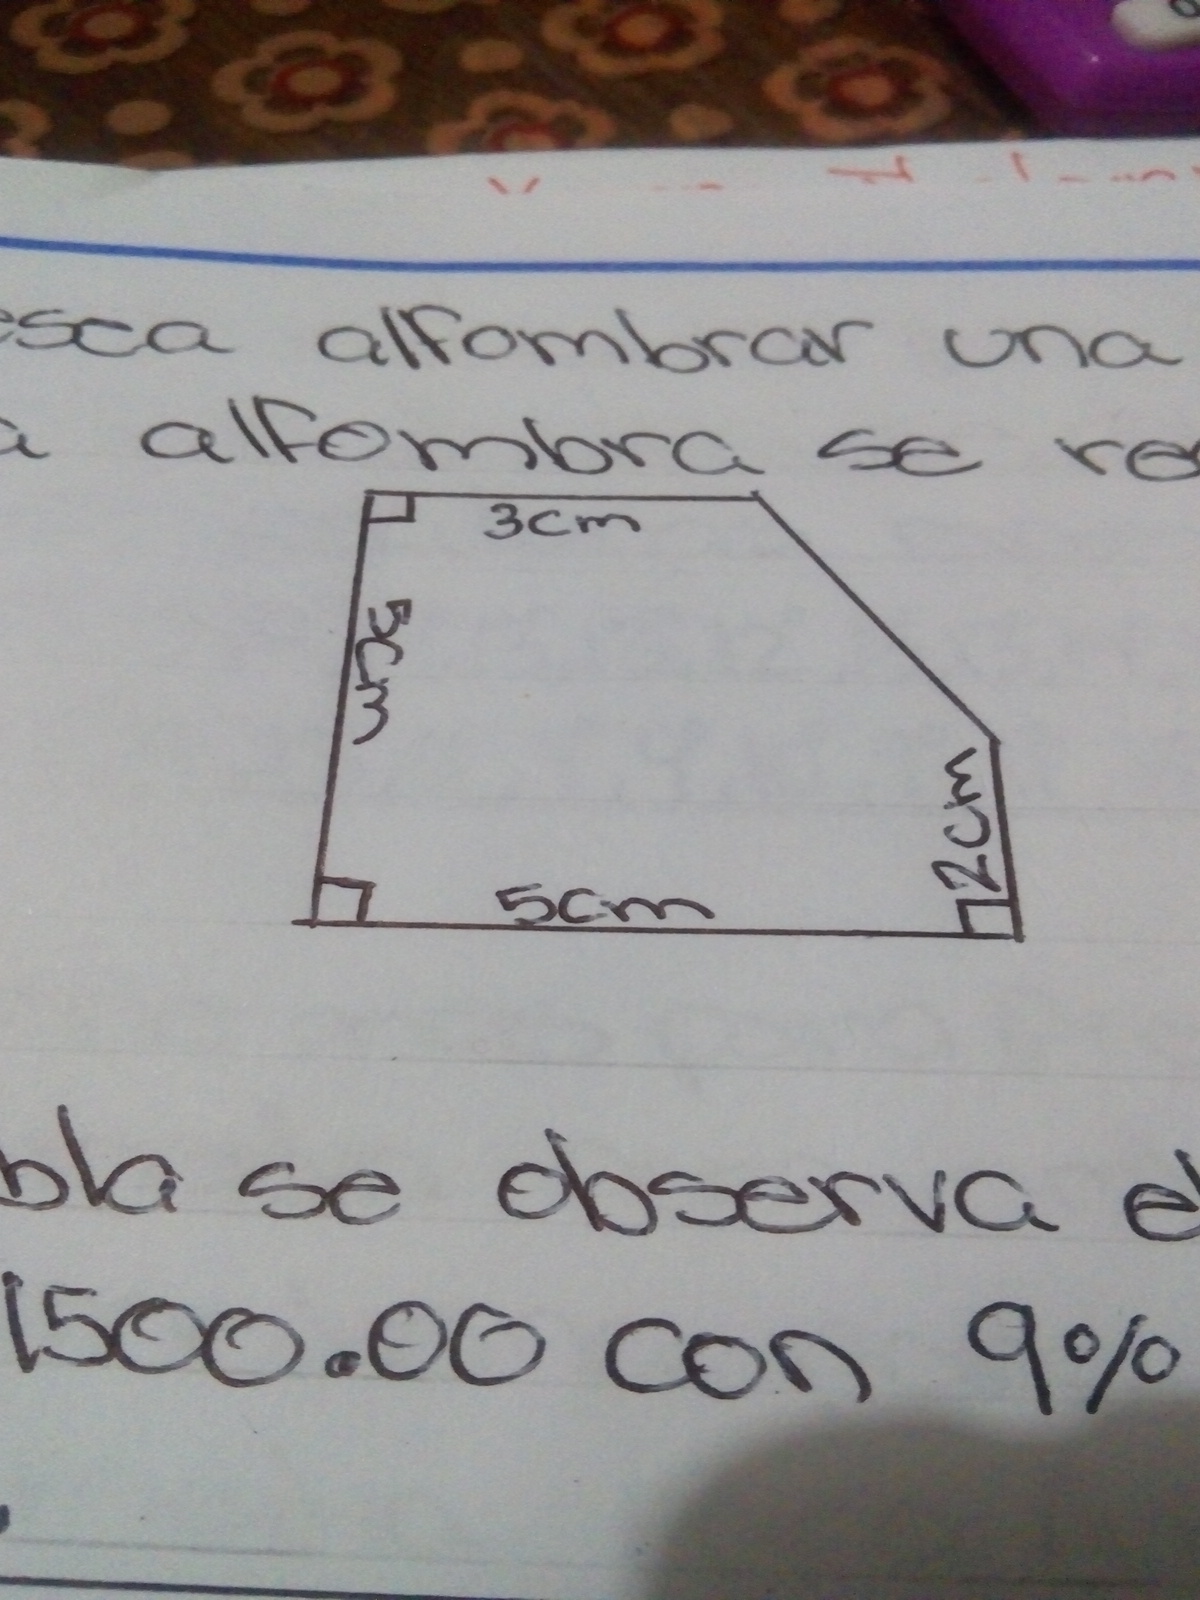 alfombrar una
alfombra se
3cm
5cm
2cm
5cm
se observa el
1500.00 con 9%